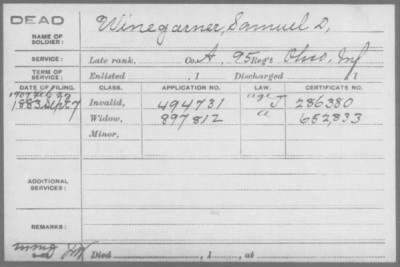 DEAD
NAME OF SOLDIER: Winegarner, Samuel D,
SERVICE: Late rank, Co. A, 95 Reg't Ohio, Inf
TERM OF SERVICE: Enlisted , 1 Discharged , 1
DATE OF FILING. CLASS. APPLICATION NO. LAW. CERTIFICATE NO.
1907
1883 Sept 7 Invalid, 494731 J 286380
Widow, 897812 a 652,833
Minor,
ADDITIONAL SERVICES:
REMARKS:
Died , 1 , at